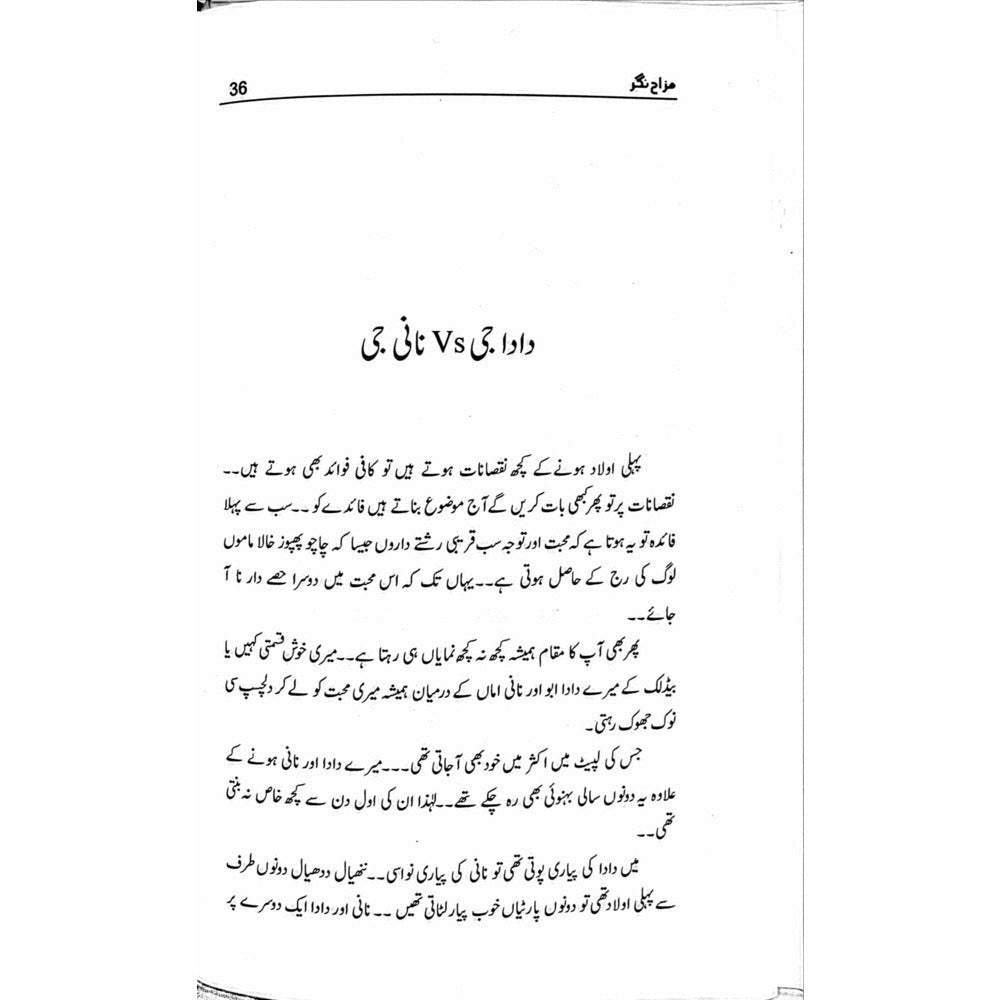 مزاح نگر
36
دادا جی Vs نانی جی
پہلی اولاد ہونے کے کچھ نقصانات ہوتے ہیں تو کافی فوائد بھی ہوتے ہیں۔۔
نقصانات پر تو پھر کبھی بات کریں گے آج موضوع بناتے ہیں فائدے کو ۔۔سب سے پہلا
فائدہ تو یہ ہوتا ہے کہ محبت اور توجہ سب قریبی رشتے داروں جیسا کہ چاچو پھپوز خالا ماموں
لوگ کی رج کے حاصل ہوتی ہے۔۔یہاں تک کہ اس محبت میں دوسرا حصے دار نا آ
جائے۔۔
پھر بھی آپ کا مقام ہمیشہ کچھ نہ کچھ نمایاں ہی رہتا ہے۔۔میری خوش قسمتی کہیں یا
بیڈ لک کے میرے دادا ابو اور نانی اماں کے درمیان ہمیشہ میری محبت کو لے کر دلچسپ سی
نوک جھوک رہتی۔
جس کی لپیٹ میں اکثر میں خود بھی آجاتی تھی۔۔۔میرے دادا اور نانی ہونے کے
علاوہ یہ دونوں سالی بہنوئی بھی رہ چکے تھے۔۔لہٰذا ان کی اول دن سے کچھ خاص نہ بنتی
تھی۔۔
میں دادا کی پیاری پوتی تھی تو نانی کی پیاری نواسی۔۔ننھیال ددھیال دونوں طرف
سے پہلی اولاد تھی تو دونوں پارٹیاں خوب پیار لٹاتی تھیں ۔۔نانی اور دادا ایک دوسرے پر